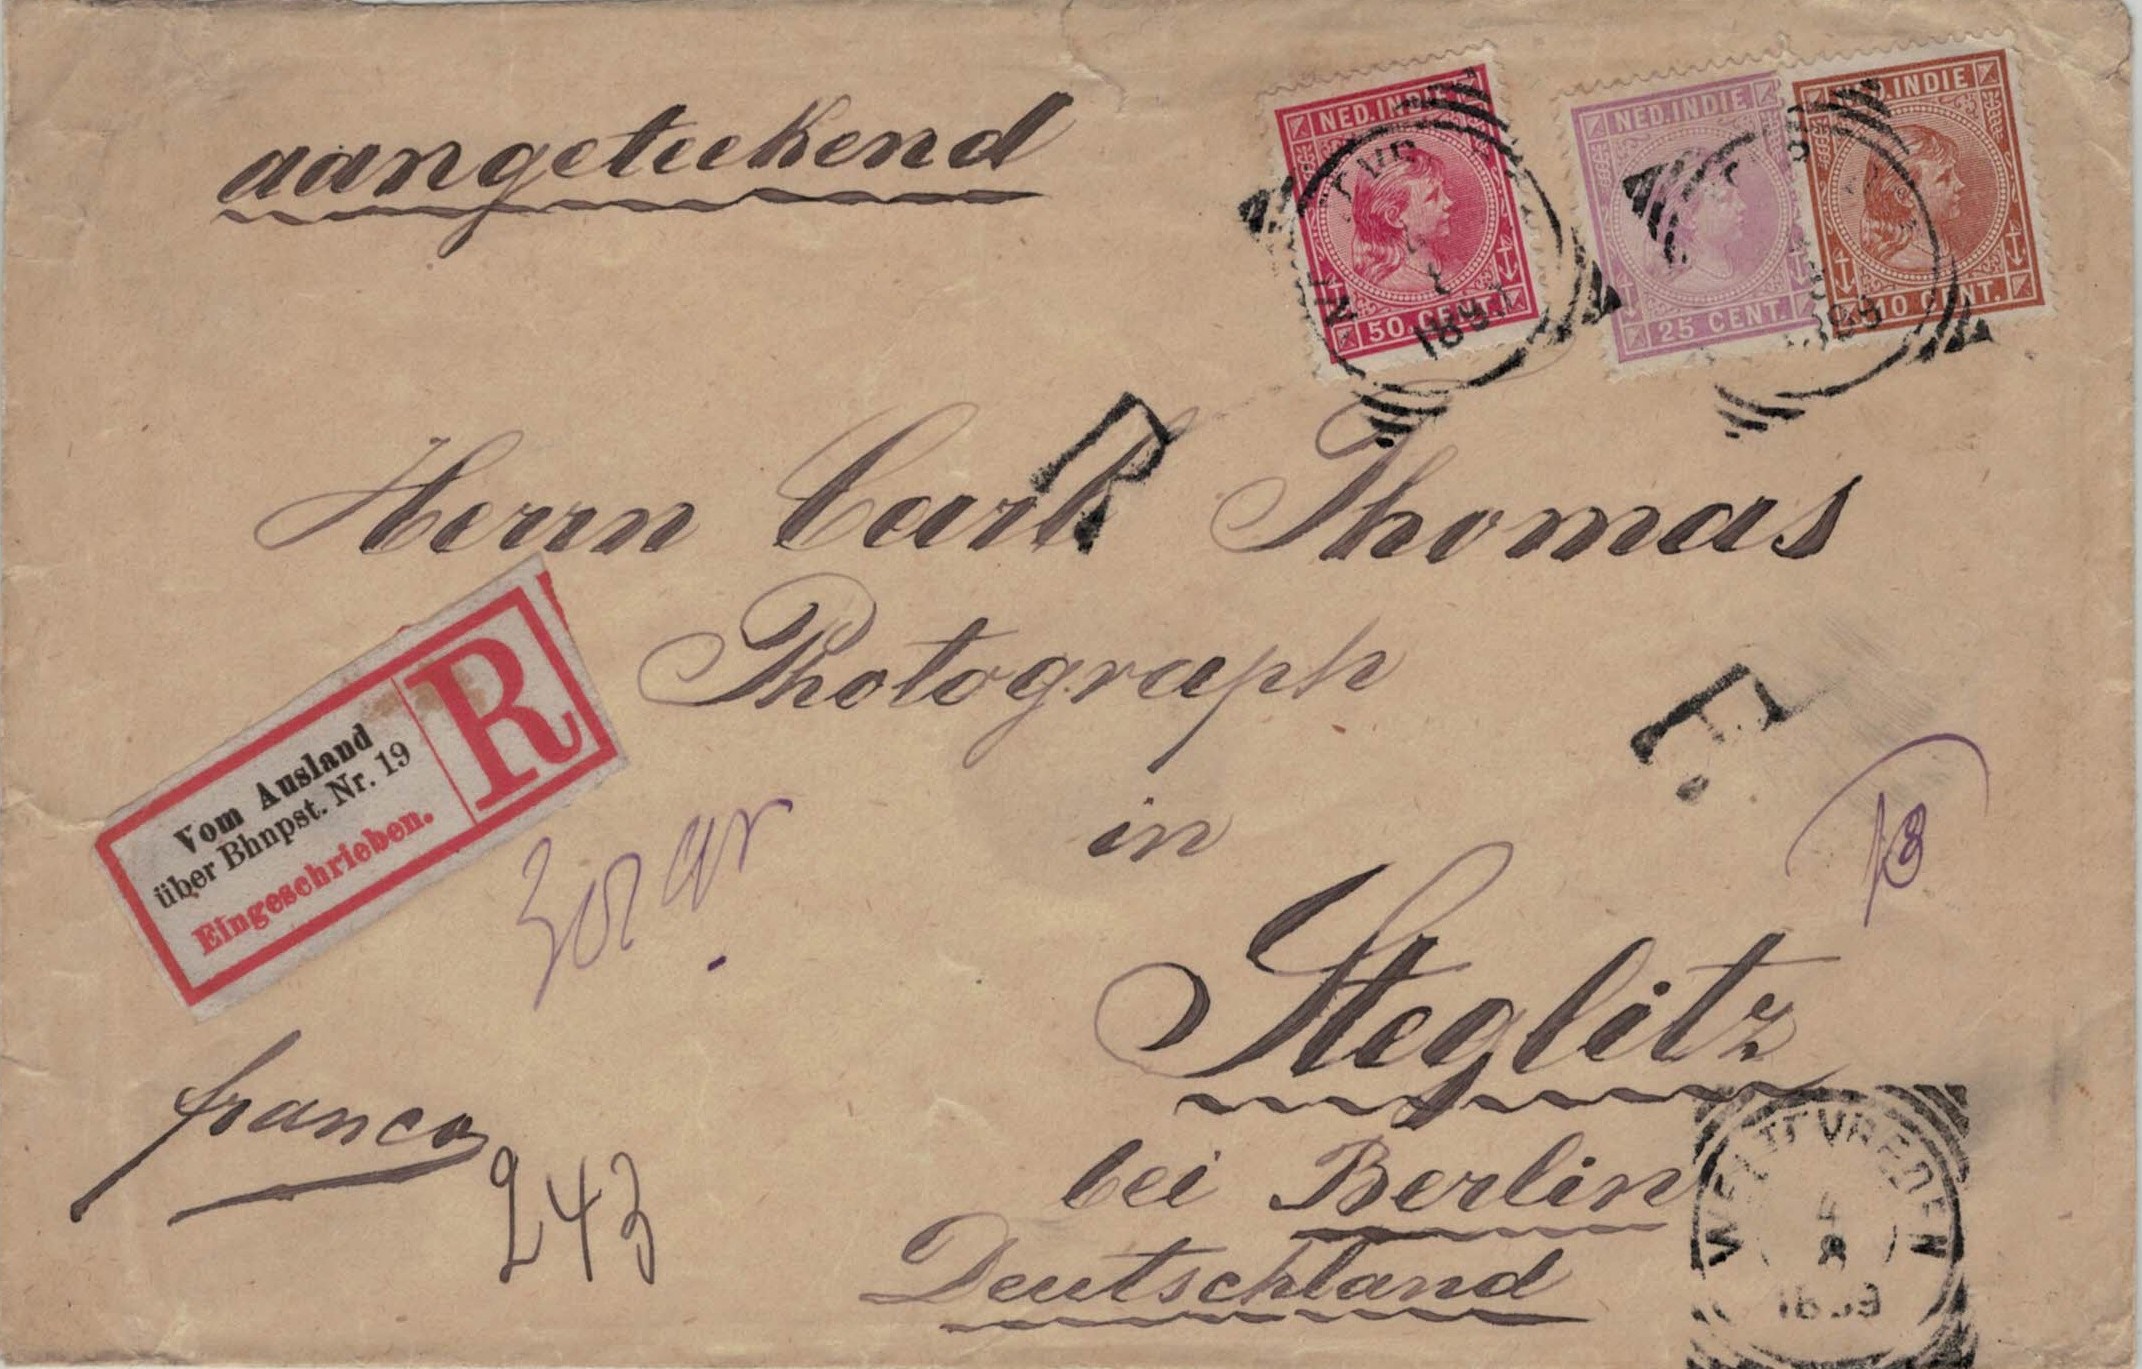 aangeteekend
NED. INDIE
50 CENT.
1897
NED. INDIE
25 CENT.
NED. INDIE
10 CENT.
R
Herrn Carl Thomas
Photograph
in
Steglitz
bei Berlin
Deutschland
F.
Vom Ausland
über Bhnpst. Nr. 19
Eingeschrieben.
R
franco
243
WELTEVREDEN
4
8